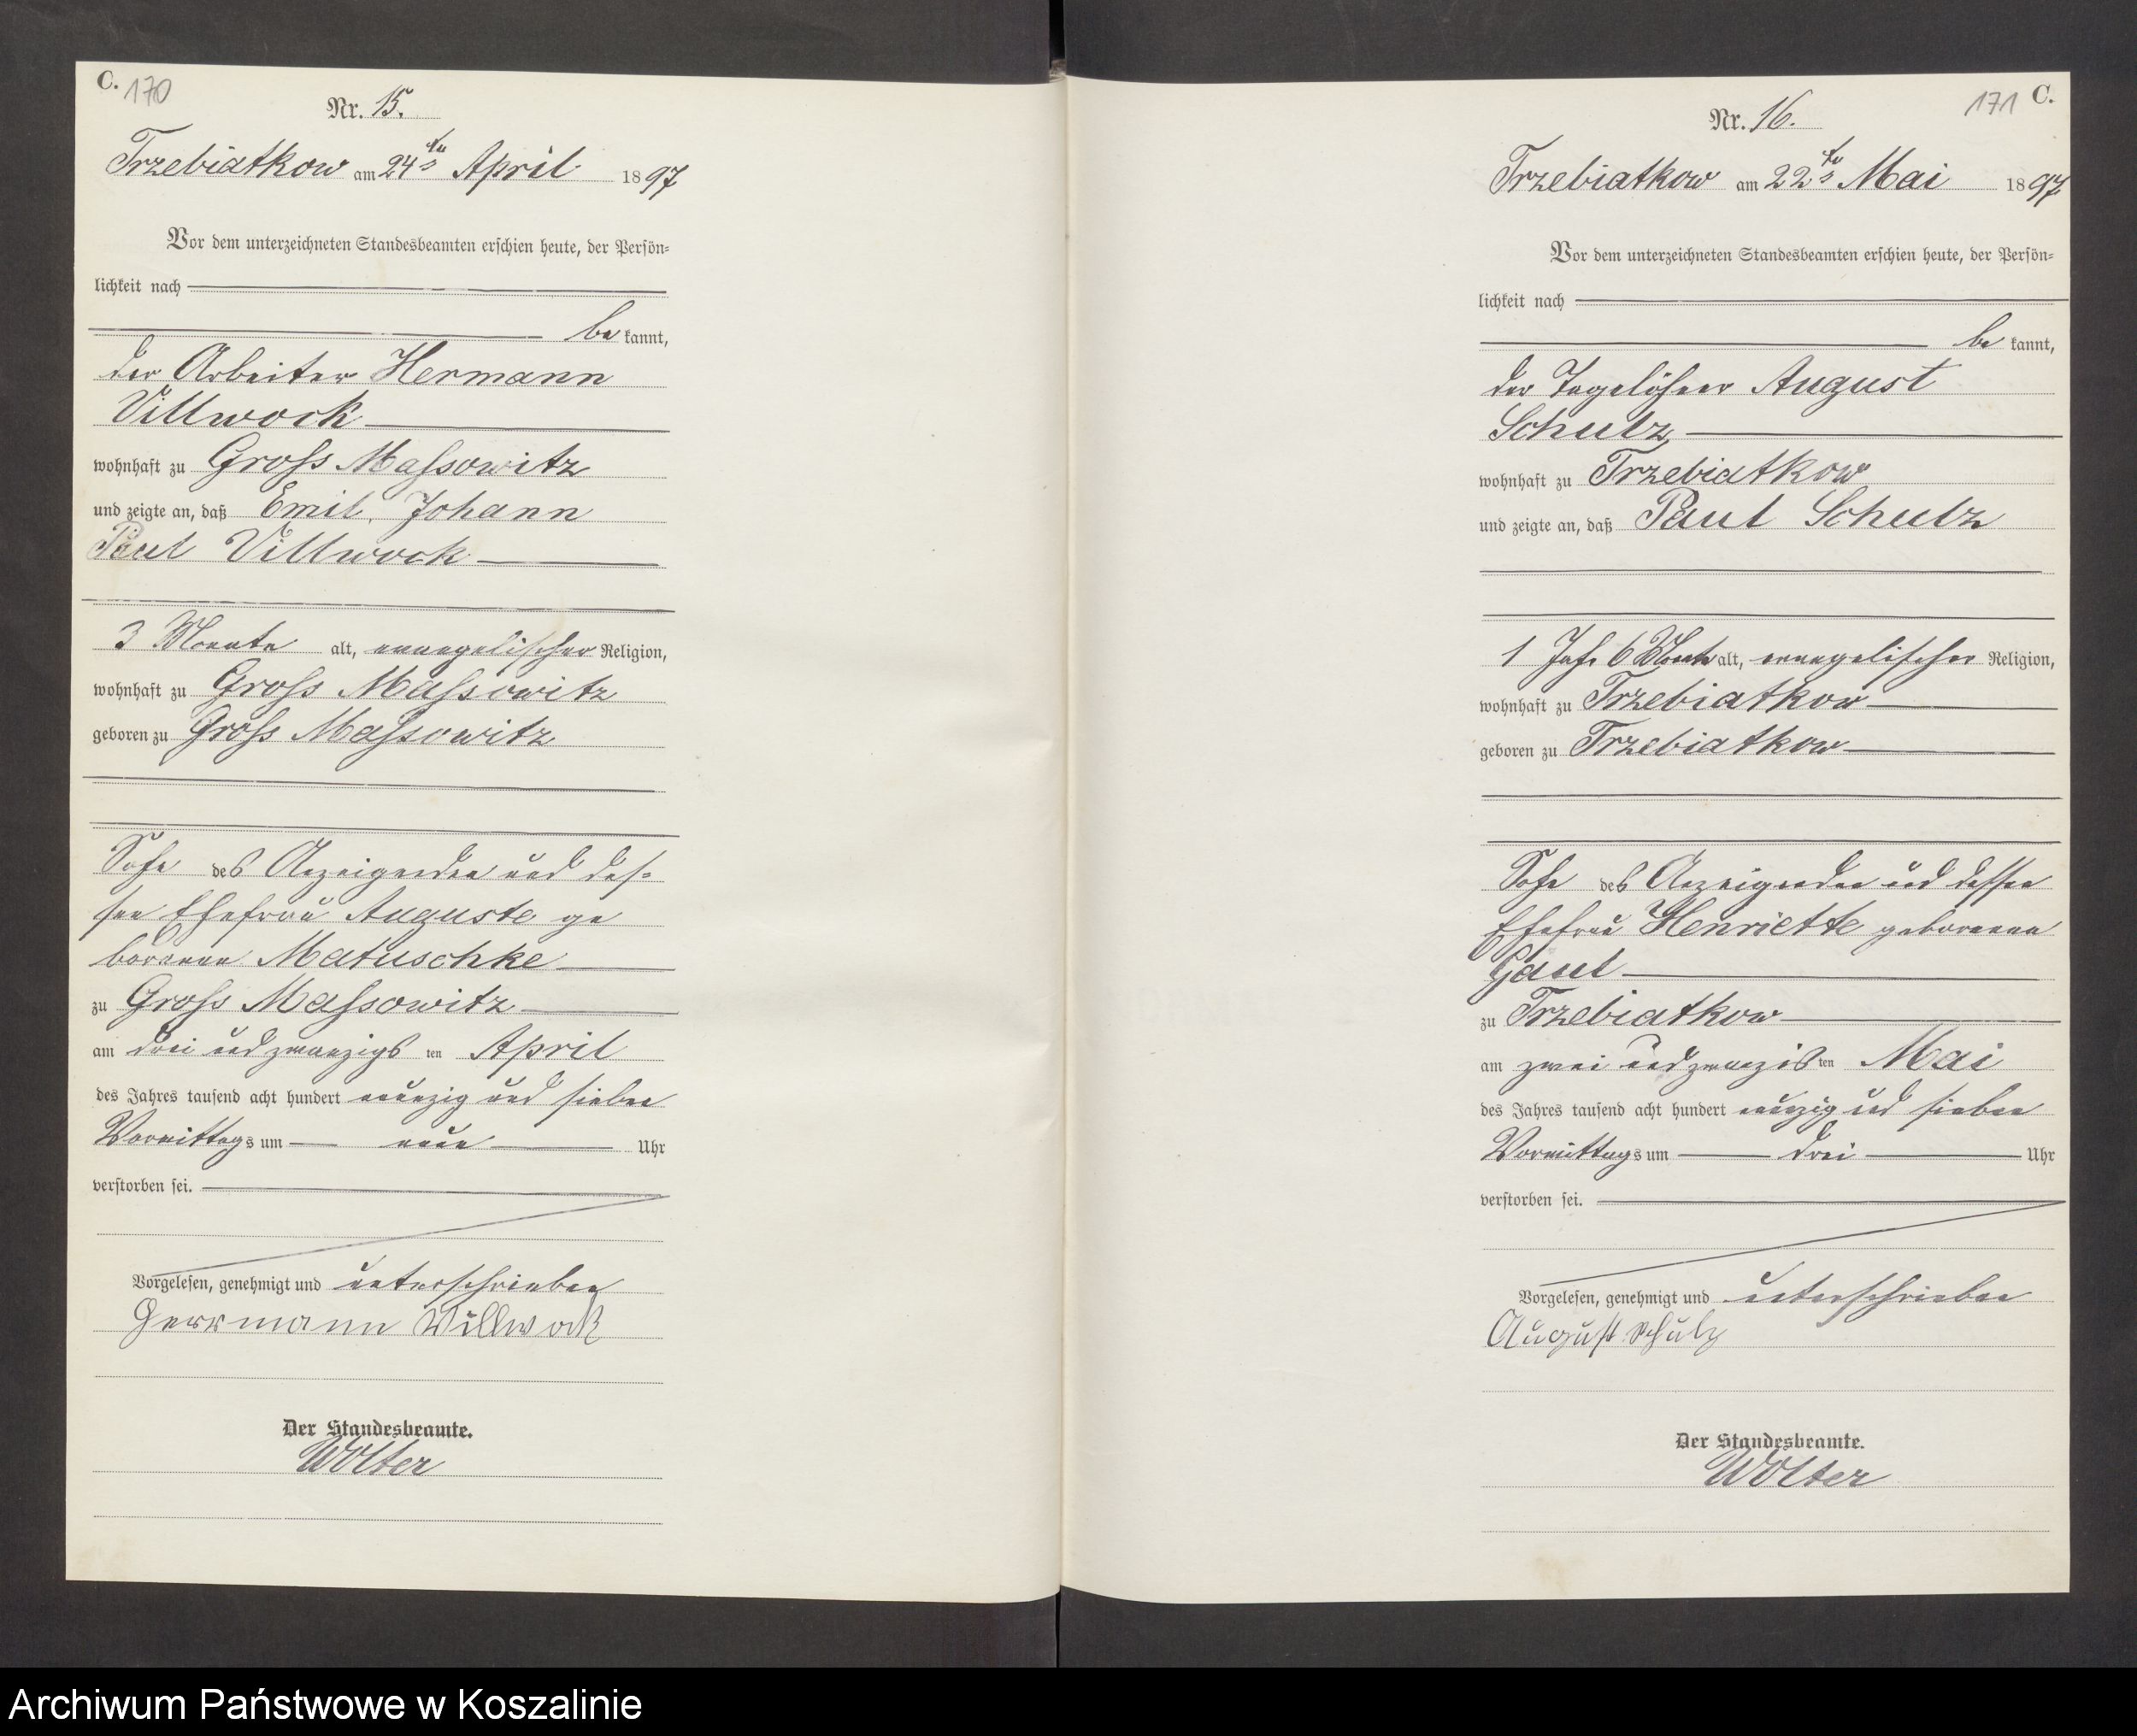 C. 170
Nr. 15.
Trzebiatkow am 24ten April 1897
Vor dem unterzeichneten Standesbeamten erschien heute, der Persön-
lichkeit nach
be kannt,
der Arbeiter Hermann
Villwock
wohnhaft zu Gross Massowitz
und zeigte an, daß Emil, Johann
Paul Villwock
3 Monate alt, evangelischer Religion,
wohnhaft zu Gross Massowitz
geboren zu Gross Massowitz
Sohn des Anzeigenden und des-
sen Ehefrau Auguste ge
borenen Matuschke
zu Gross Massowitz
am drei und zwanzigs ten April
des Jahres tausend acht hundert neunzig und sieben
Vormittags um neun Uhr
verstorben sei.
Vorgelesen, genehmigt und unterschrieben
Herrmann Villwock
Der Standesbeamte.
Wolter
171 C.
Nr. 16.
Trzebiatkow am 22ten Mai 1897
Vor dem unterzeichneten Standesbeamten erschien heute, der Persön-
lichkeit nach
be kannt,
der Tagelöhner August
Schulz
wohnhaft zu Trzebiatkow
und zeigte an, daß Paul Schulz
1 Jahr 6 Monate alt, evangelischer Religion,
wohnhaft zu Trzebiatkow
geboren zu Trzebiatkow
Sohn des Anzeigenden und dessen
Ehefrau Henriette geborenen
Gaul
zu Trzebiatkow
am zwei und zwanzigs ten Mai
des Jahres tausend acht hundert neunzig und sieben
Vormittags um drei Uhr
verstorben sei.
Vorgelesen, genehmigt und unterschrieben
August Schulz
Der Standesbeamte.
Wolter
Archiwum Państwowe w Koszalinie